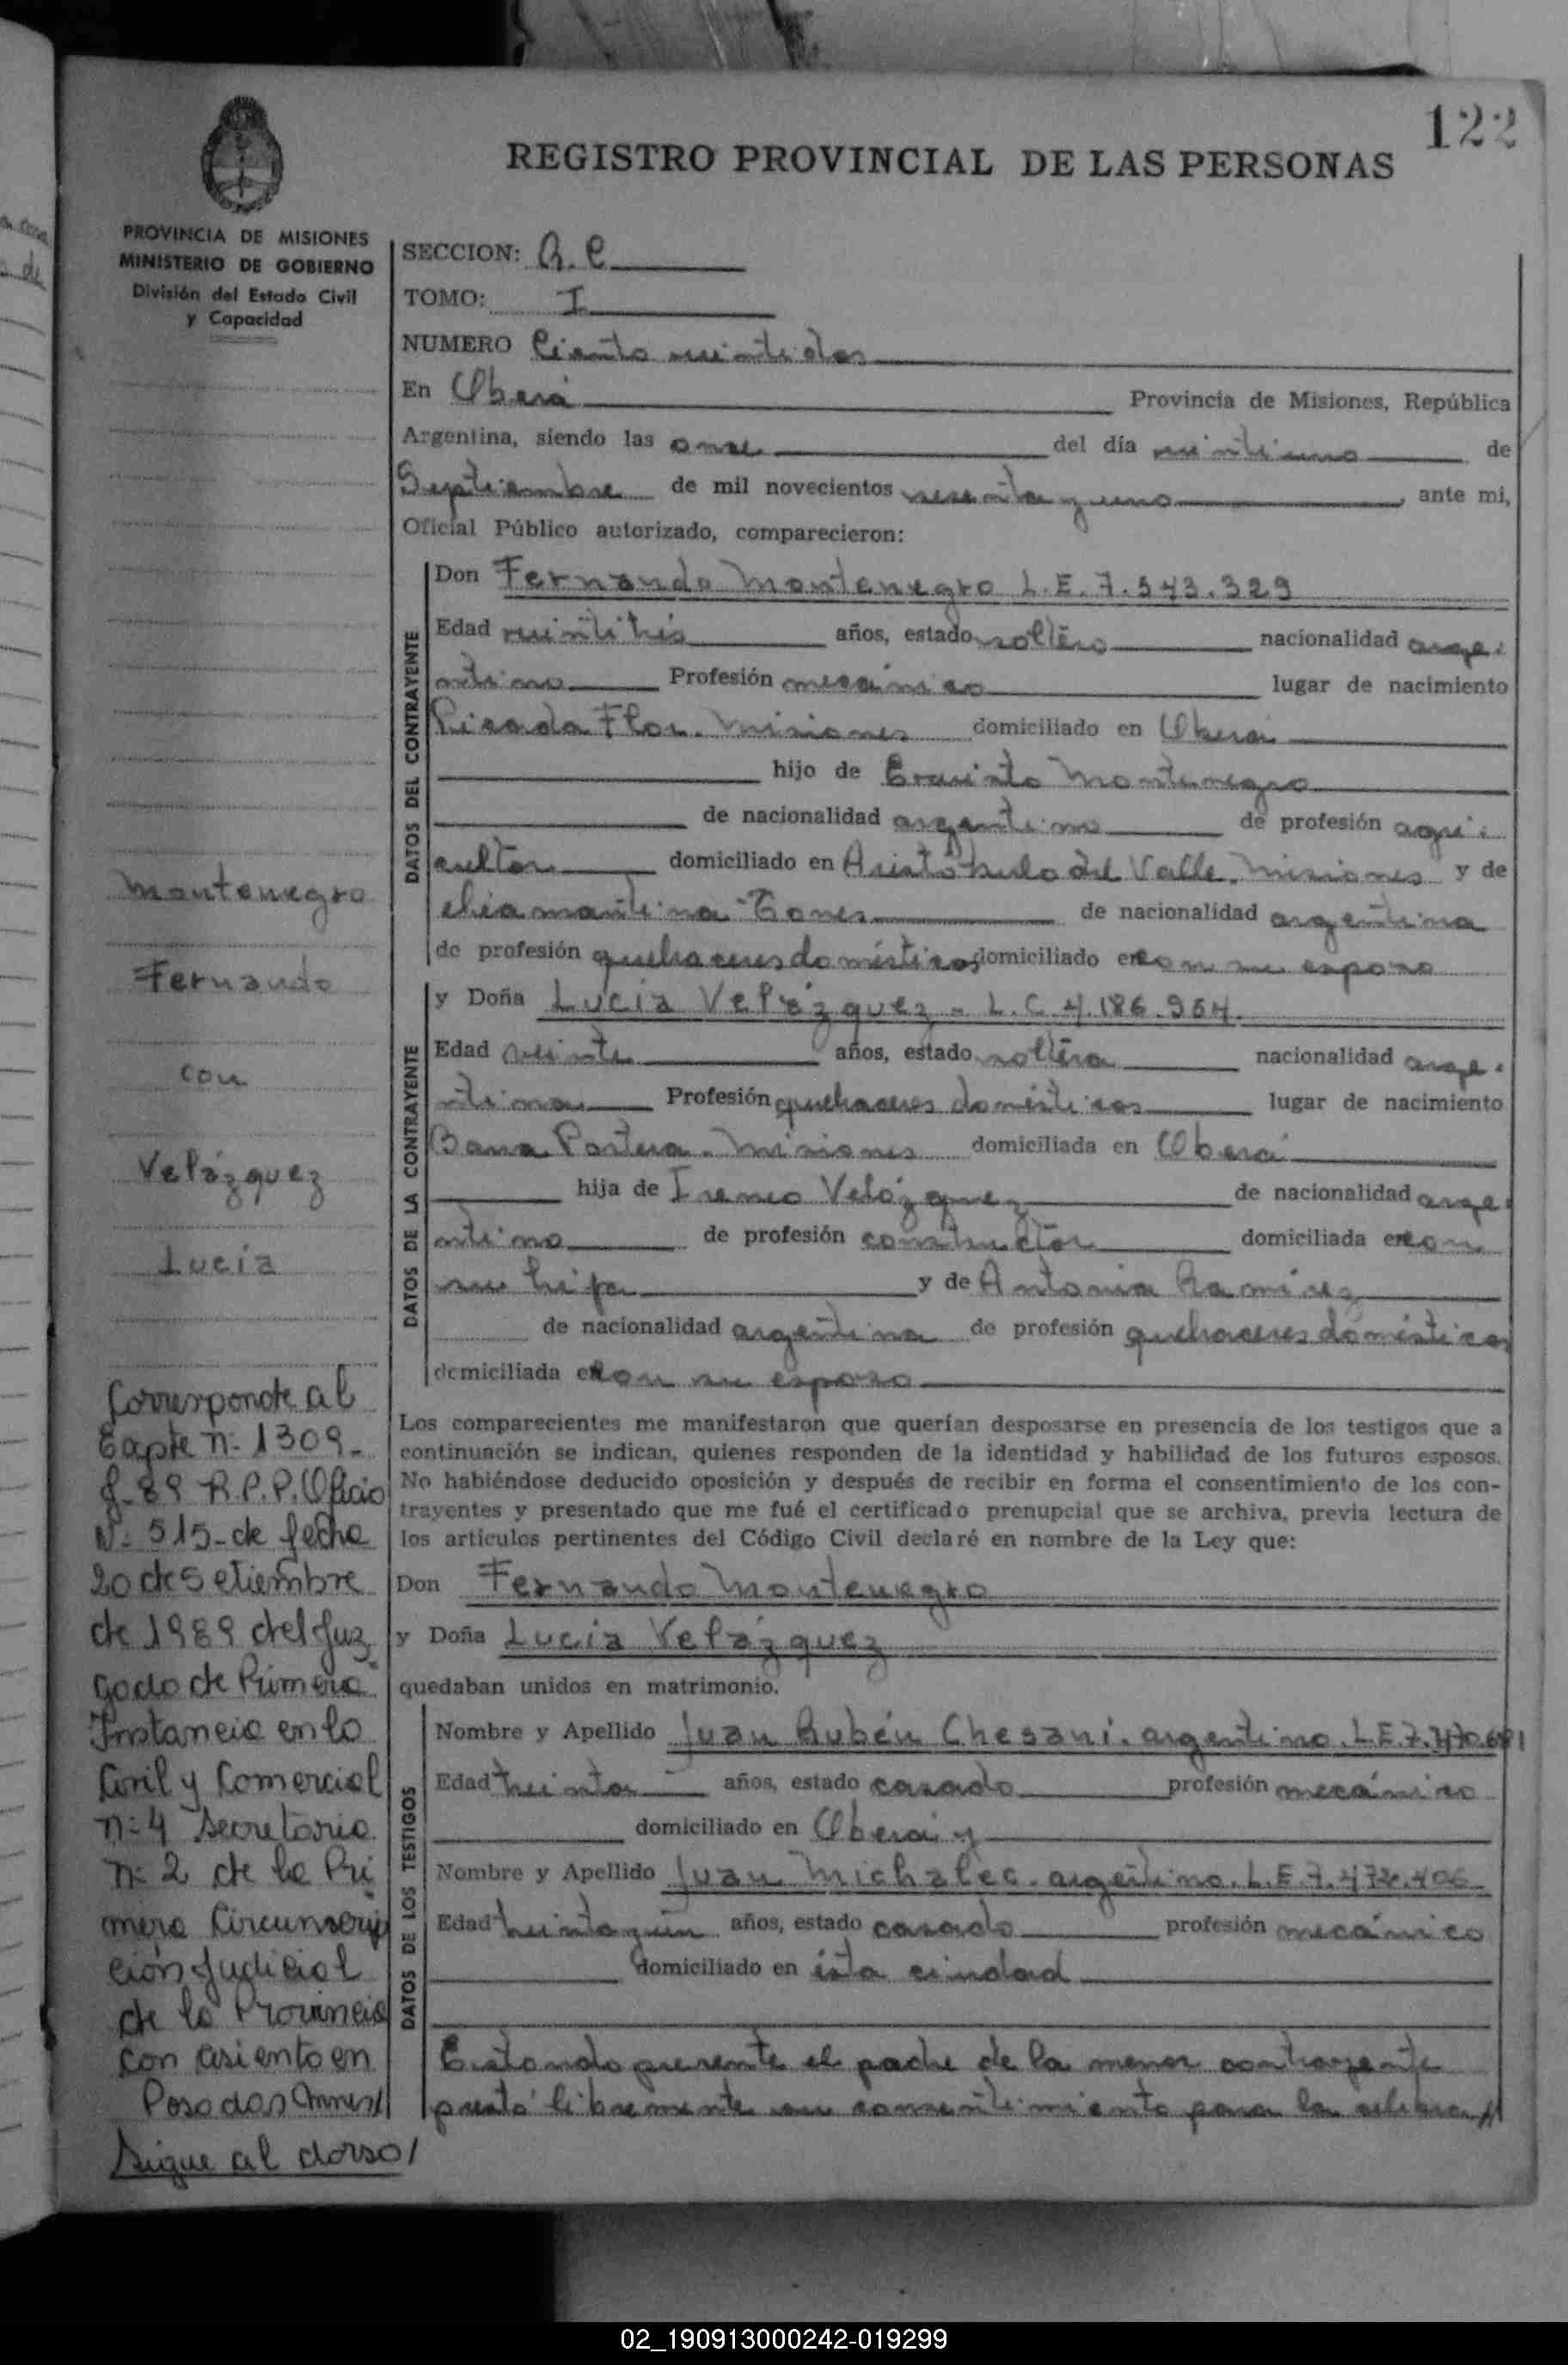 122
REGISTRO PROVINCIAL DE LAS PERSONAS
PROVINCIA DE MISIONES
MINISTERIO DE GOBIERNO
División del Estado Civil
y Capacidad
SECCION: R. C
TOMO: I
NUMERO Ciento veintidos
En Oberá Provincia de Misiones, República
Argentina, siendo las once del día veintiuno de
Septiembre de mil novecientos sesenta y uno, ante mi,
Oficial Público autorizado, comparecieron:
DATOS DEL CONTRAYENTE
Don Fernando Montenegro L.E. 7.543.329
Edad veintitrés años, estado soltero nacionalidad arge-
ntino Profesión mecánico lugar de nacimiento
Picada Flor. Misiones domiciliado en Oberá
hijo de Montenegro
de nacionalidad argentino de profesión agri-
cultor domiciliado en Aristóbulo del Valle. Misiones y de
de nacionalidad argentina
de profesión quehaceres domésticos domiciliado en con su esposo
DATOS DE LA CONTRAYENTE
y Doña Lucía Velázquez - L.C. 4.186.964.
Edad veinte años, estado soltera nacionalidad arge-
ntina Profesión quehaceres domésticos lugar de nacimiento
Misiones domiciliada en Oberá
hija de Ireneo Velázquez de nacionalidad arge-
ntino de profesión constructor domiciliada en con
su hija y de Antonia Ramírez
de nacionalidad argentina de profesión quehaceres domésticos
domiciliada en con su esposo
Los comparecientes me manifestaron que querían desposarse en presencia de los testigos que a
continuación se indican, quienes responden de la identidad y habilidad de los futuros esposos.
No habiéndose deducido oposición y después de recibir en forma el consentimiento de los con-
trayentes y presentado que me fué el certificado prenupcial que se archiva, previa lectura de
los artículos pertinentes del Código Civil declaré en nombre de la Ley que:
Don Fernando Montenegro
y Doña Lucía Velázquez
quedaban unidos en matrimonio.
DATOS DE LOS TESTIGOS
Nombre y Apellido Juan Rubén Chesani. argentino. L.E 7.470.681
Edad treinta años, estado casado profesión mecánico
domiciliado en Oberá y
Nombre y Apellido Juan Michalec. argentino. L.E.
Edad treinta y un años, estado casado profesión mecánico
domiciliado en ésta ciudad
Estando presente el padre de la menor contrayente
prestó libremente su consentimiento para la celebra//
Montenegro
Fernando
con
Velázquez
Lucía
Corresponde al
Expte n: 1309-
f-89 R.P.P. Oficio
N: 515- de fecha
20 de Setiembre
de 1989 del Juz
gado de Primera
Instancia en lo
Civil y Comercial
n: 4 Secretaria
n: 2 de la Pri
mera Circunscrip
ción Judicial
de la Provincia
con asiento en
Posadas Mnes//
Sigue al dorso/
02_190913000242-019299